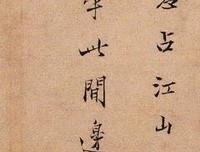 占江山
此間身